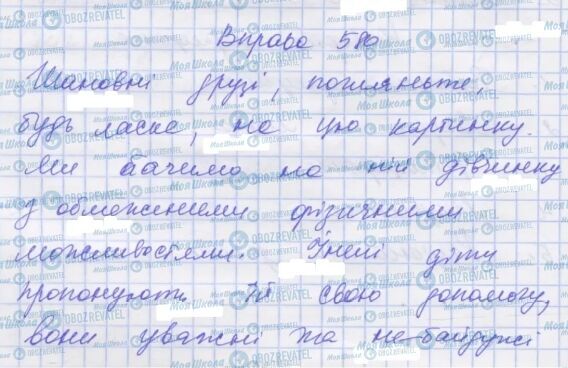 Вправа 580
Шановні друзі, погляньте,
будь ласка, на цю картинку.
Ми бачимо на ній дівчинку
з обмеженими фізичними
можливостями. Інші діти
пропонують їй свою допомогу,
вони уважні та небайдужі